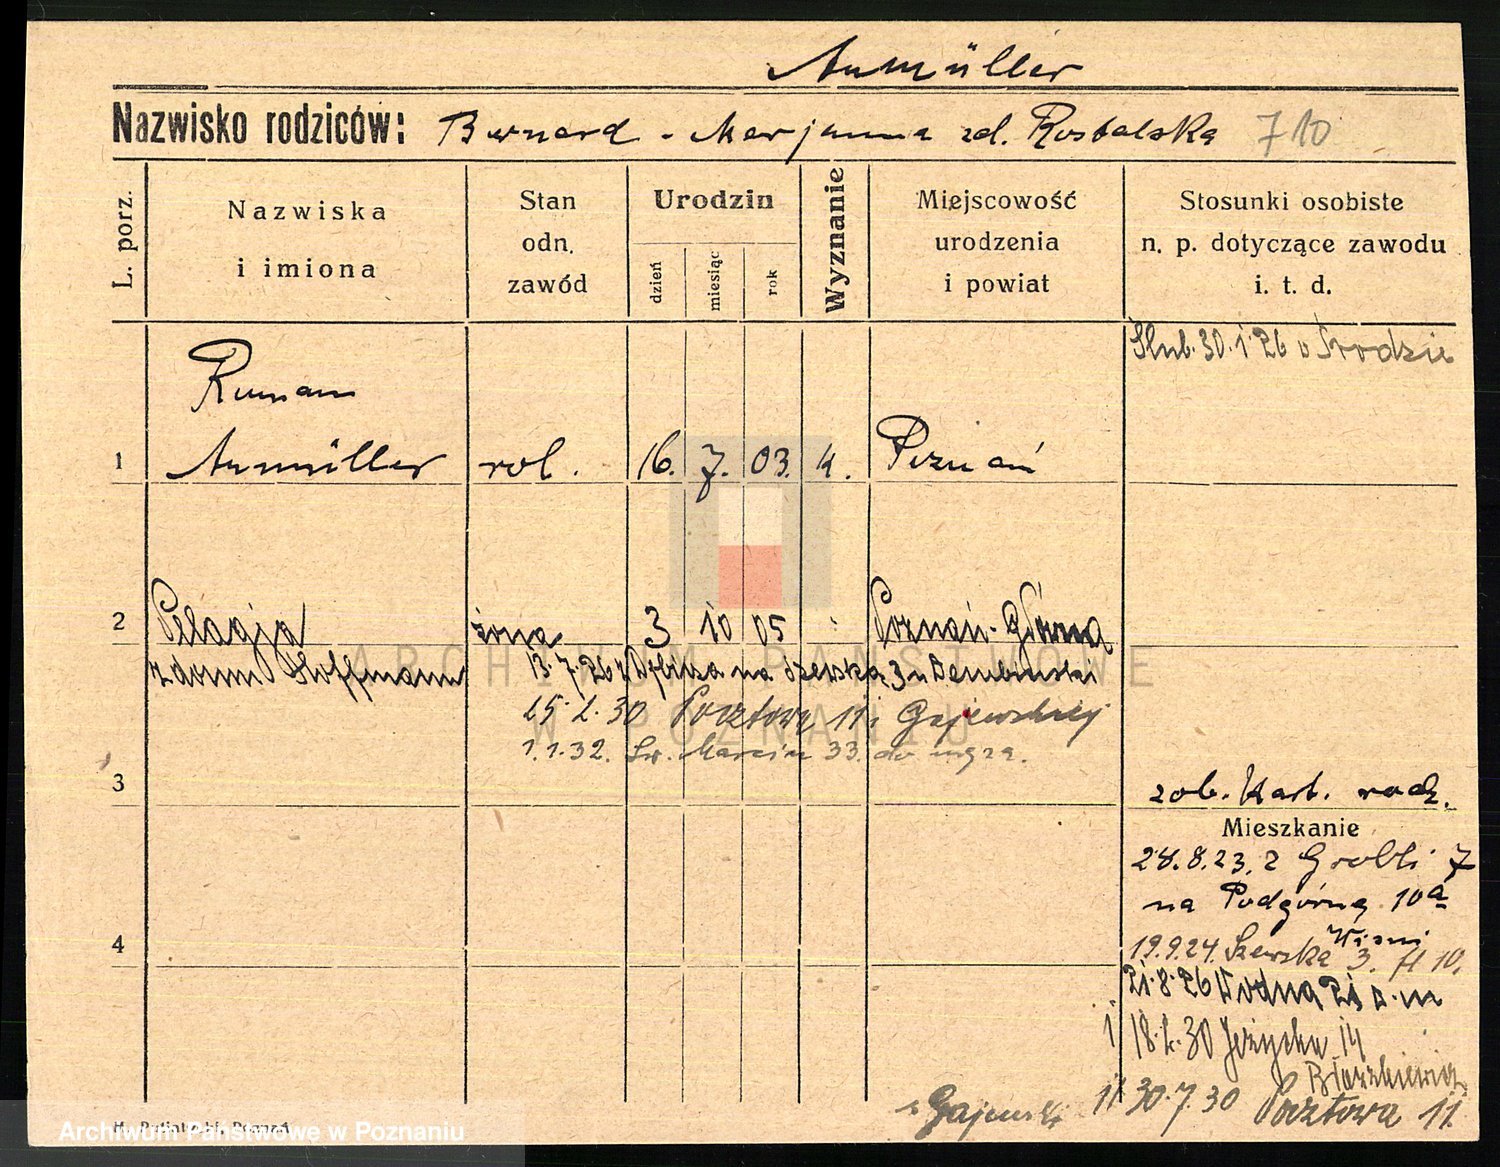 Anmüller
Nazwisko rodziców: Bernard - Marjanna zd. Rostalska 710
L. porz.
Nazwiska
i imiona
Stan
odn.
zawód
Urodzin
dzień
miesiąc
rok
Wyznanie
Miejscowość
urodzenia
i powiat
Stosunki osobiste
n. p. dotyczące zawodu
i. t. d.
Ślub. 30.1.26 w Środzie
Roman
1 Anmüller rol. 16. 7. 03. k. Poznań
2 Pelagja żona 3 10 05 Poznań-Główna
z domu Hoffmann 13.7.26 na Szewską 3 u Dembinski
30 Pocztowa 11 i Gajewskiej
1.1.32. Św. Marcin 33. do męża.
3
zob. Kart. rodz.
Mieszkanie
28.8.23, z Grobli 7
na Podgórną 10a
4
19.9.24. Szewska 3. 10.
21.8.26 Wodna
18. 30 Jeżycka 14
Błaszkiewicz
Gajewski 30.7.30 Pocztowa 11.
ARCHIWUM PAŃSTWOWE
W POZNANIU
Archiwum Państwowe w Poznaniu